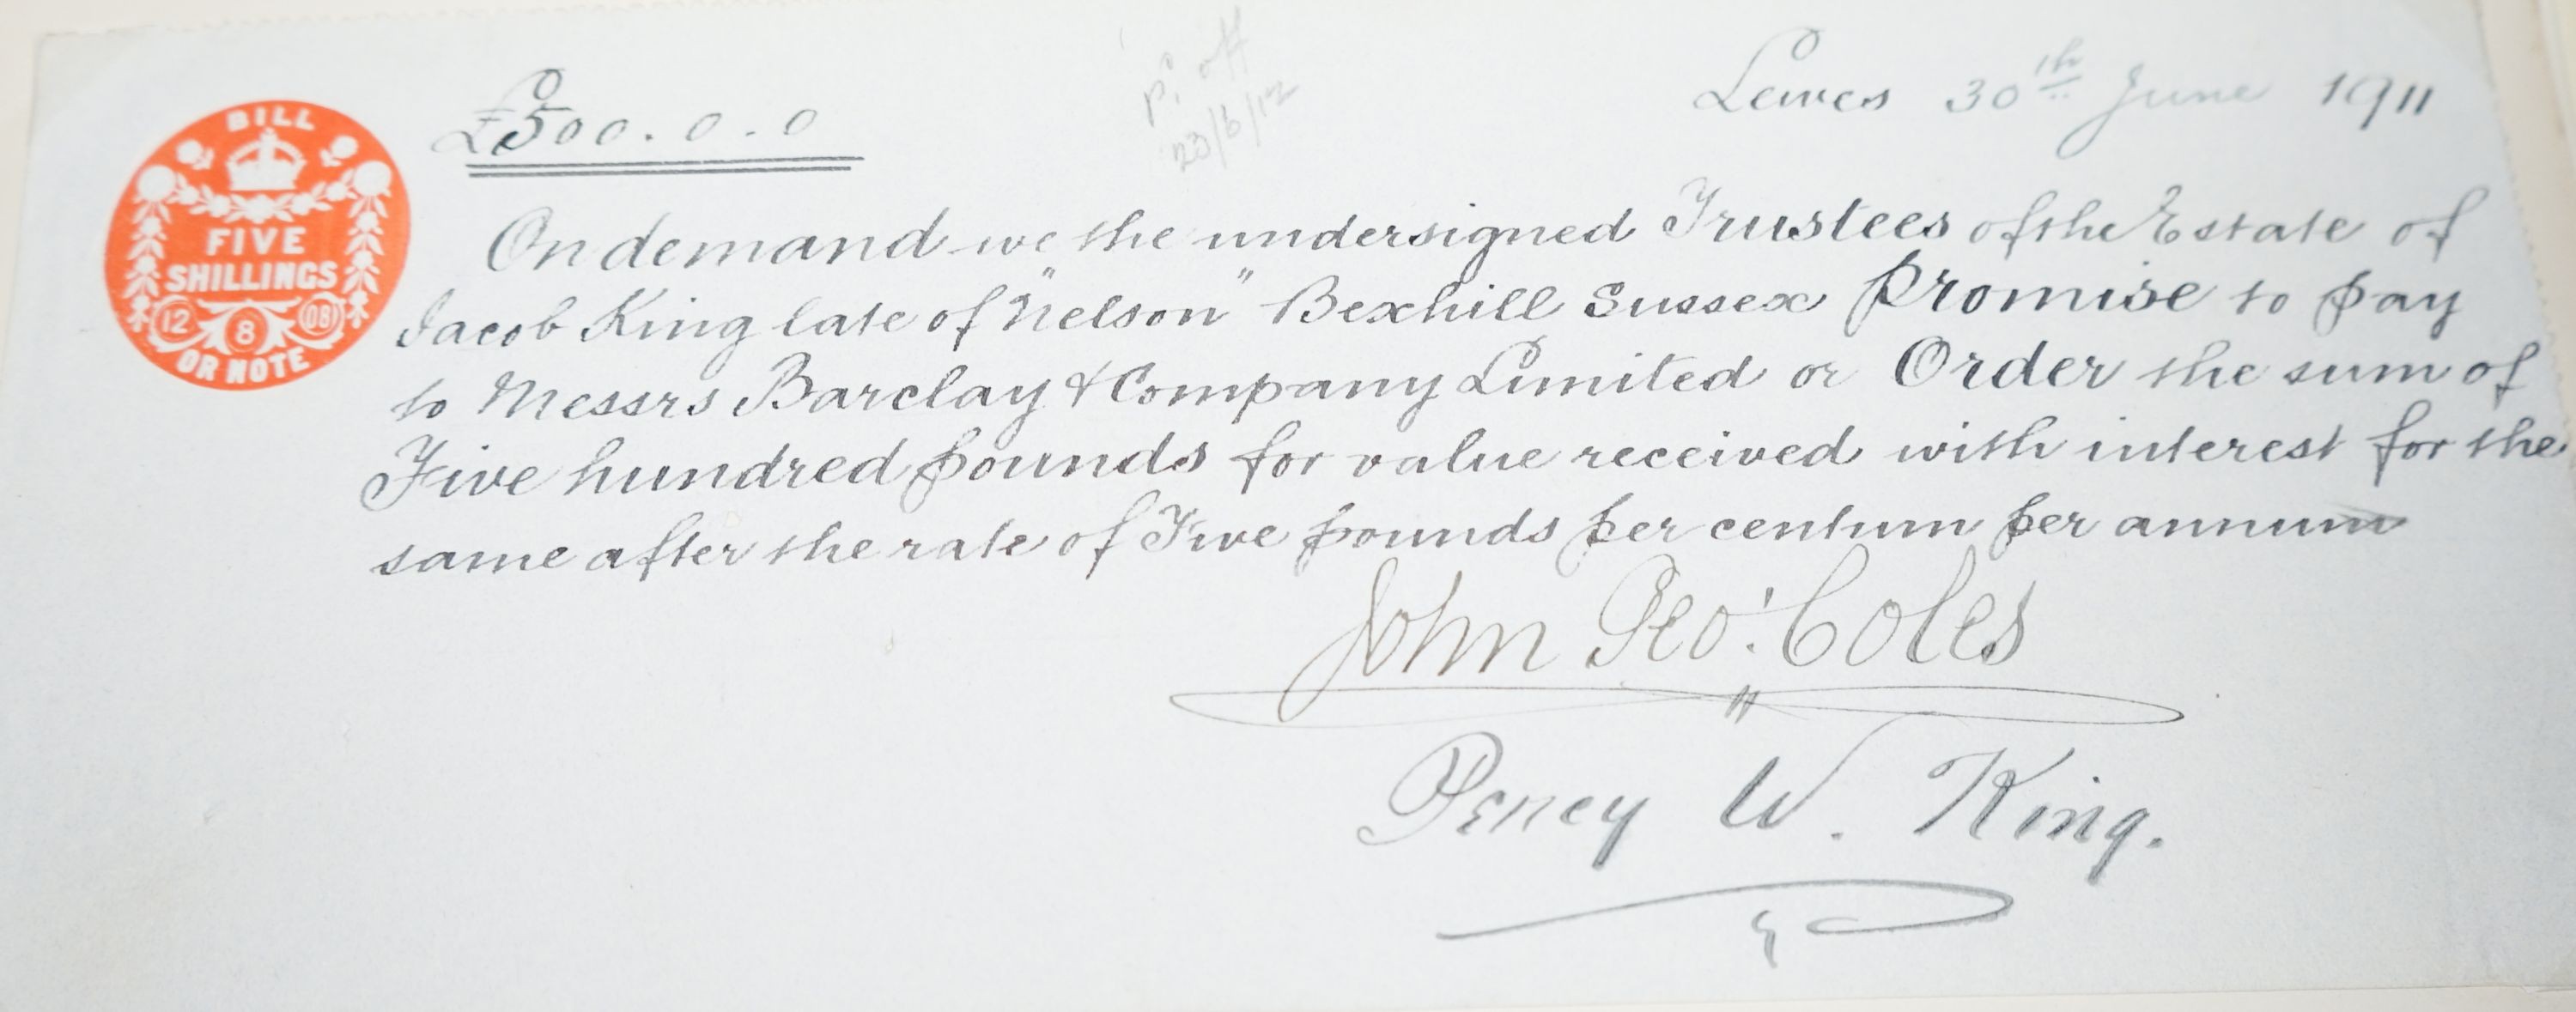 BILL
FIVE
SHILLINGS
12 8 08
OR NOTE
£500. 0. 0
pd off
23/6/12
Lewes 30th June 1911
On demand we the undersigned Trustees of the Estate of
Jacob King late of "Nelson" Bexhill Sussex Promise to pay
to Messrs Barclay & Company Limited or Order the sum of
Five hundred pounds for value received with interest for the
same after the rate of Five pounds per centum per annum
John Geo: Coles
Percy W. King.